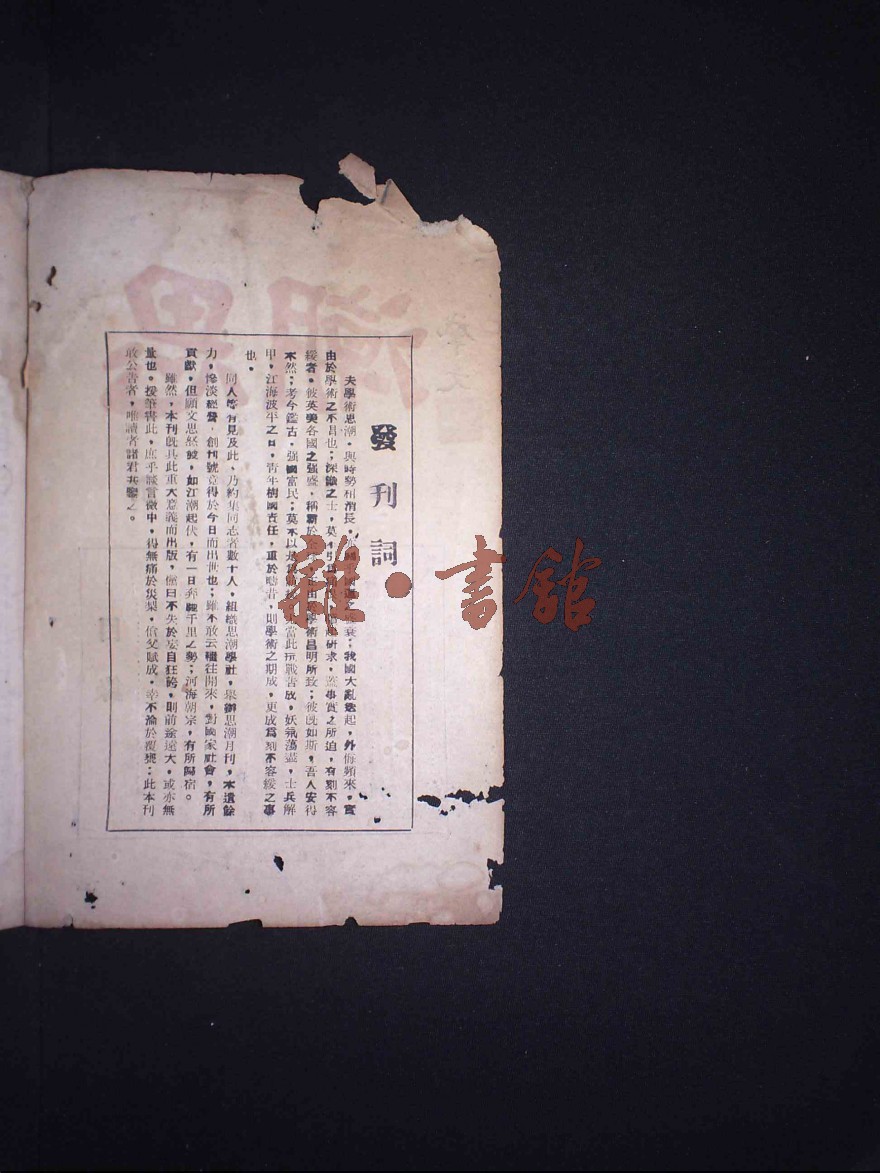 發刊詞
夫學術思潮，與時勢相消長，我國大亂迭起，外侮頻來，實
由於學術之不昌也；深識之士，莫研求，蓋事實之所迫，有刻不容
緩者。彼英美各國之強盛，稱霸於由於學術昌明所致；彼既如斯，吾人安得
不然；考今鑑古，強國富民；莫不以當此抗戰告成，妖氛蕩盡，士兵解
甲，江海波平之日，青年樹國責任，重於疇昔，則學術之期成，更成為刻不容緩之事
也。
同人等有見及此、乃約集同志者數十人，組織思潮學社，舉辦思潮月刊，本遺餘
力，慘淡經營，創刊號竟得於今日而出世也；雖不敢云繼往開來，對國家社會，有所
貢獻，但願文思怒發，如江潮起伏，有一日奔騰千里之勢；河海朝宗，有所歸宿。
雖然，本刊既具此重大意義而出版，倘曰不失於妄自狂誇，則前途遠大，或亦無
量也。援筆書此，庶乎談言微中，得無痛於災梨，偷父賦成，幸不淪於覆甕；此本刊
敢公告者，唯讀者諸君共鑒之。
雜·書館